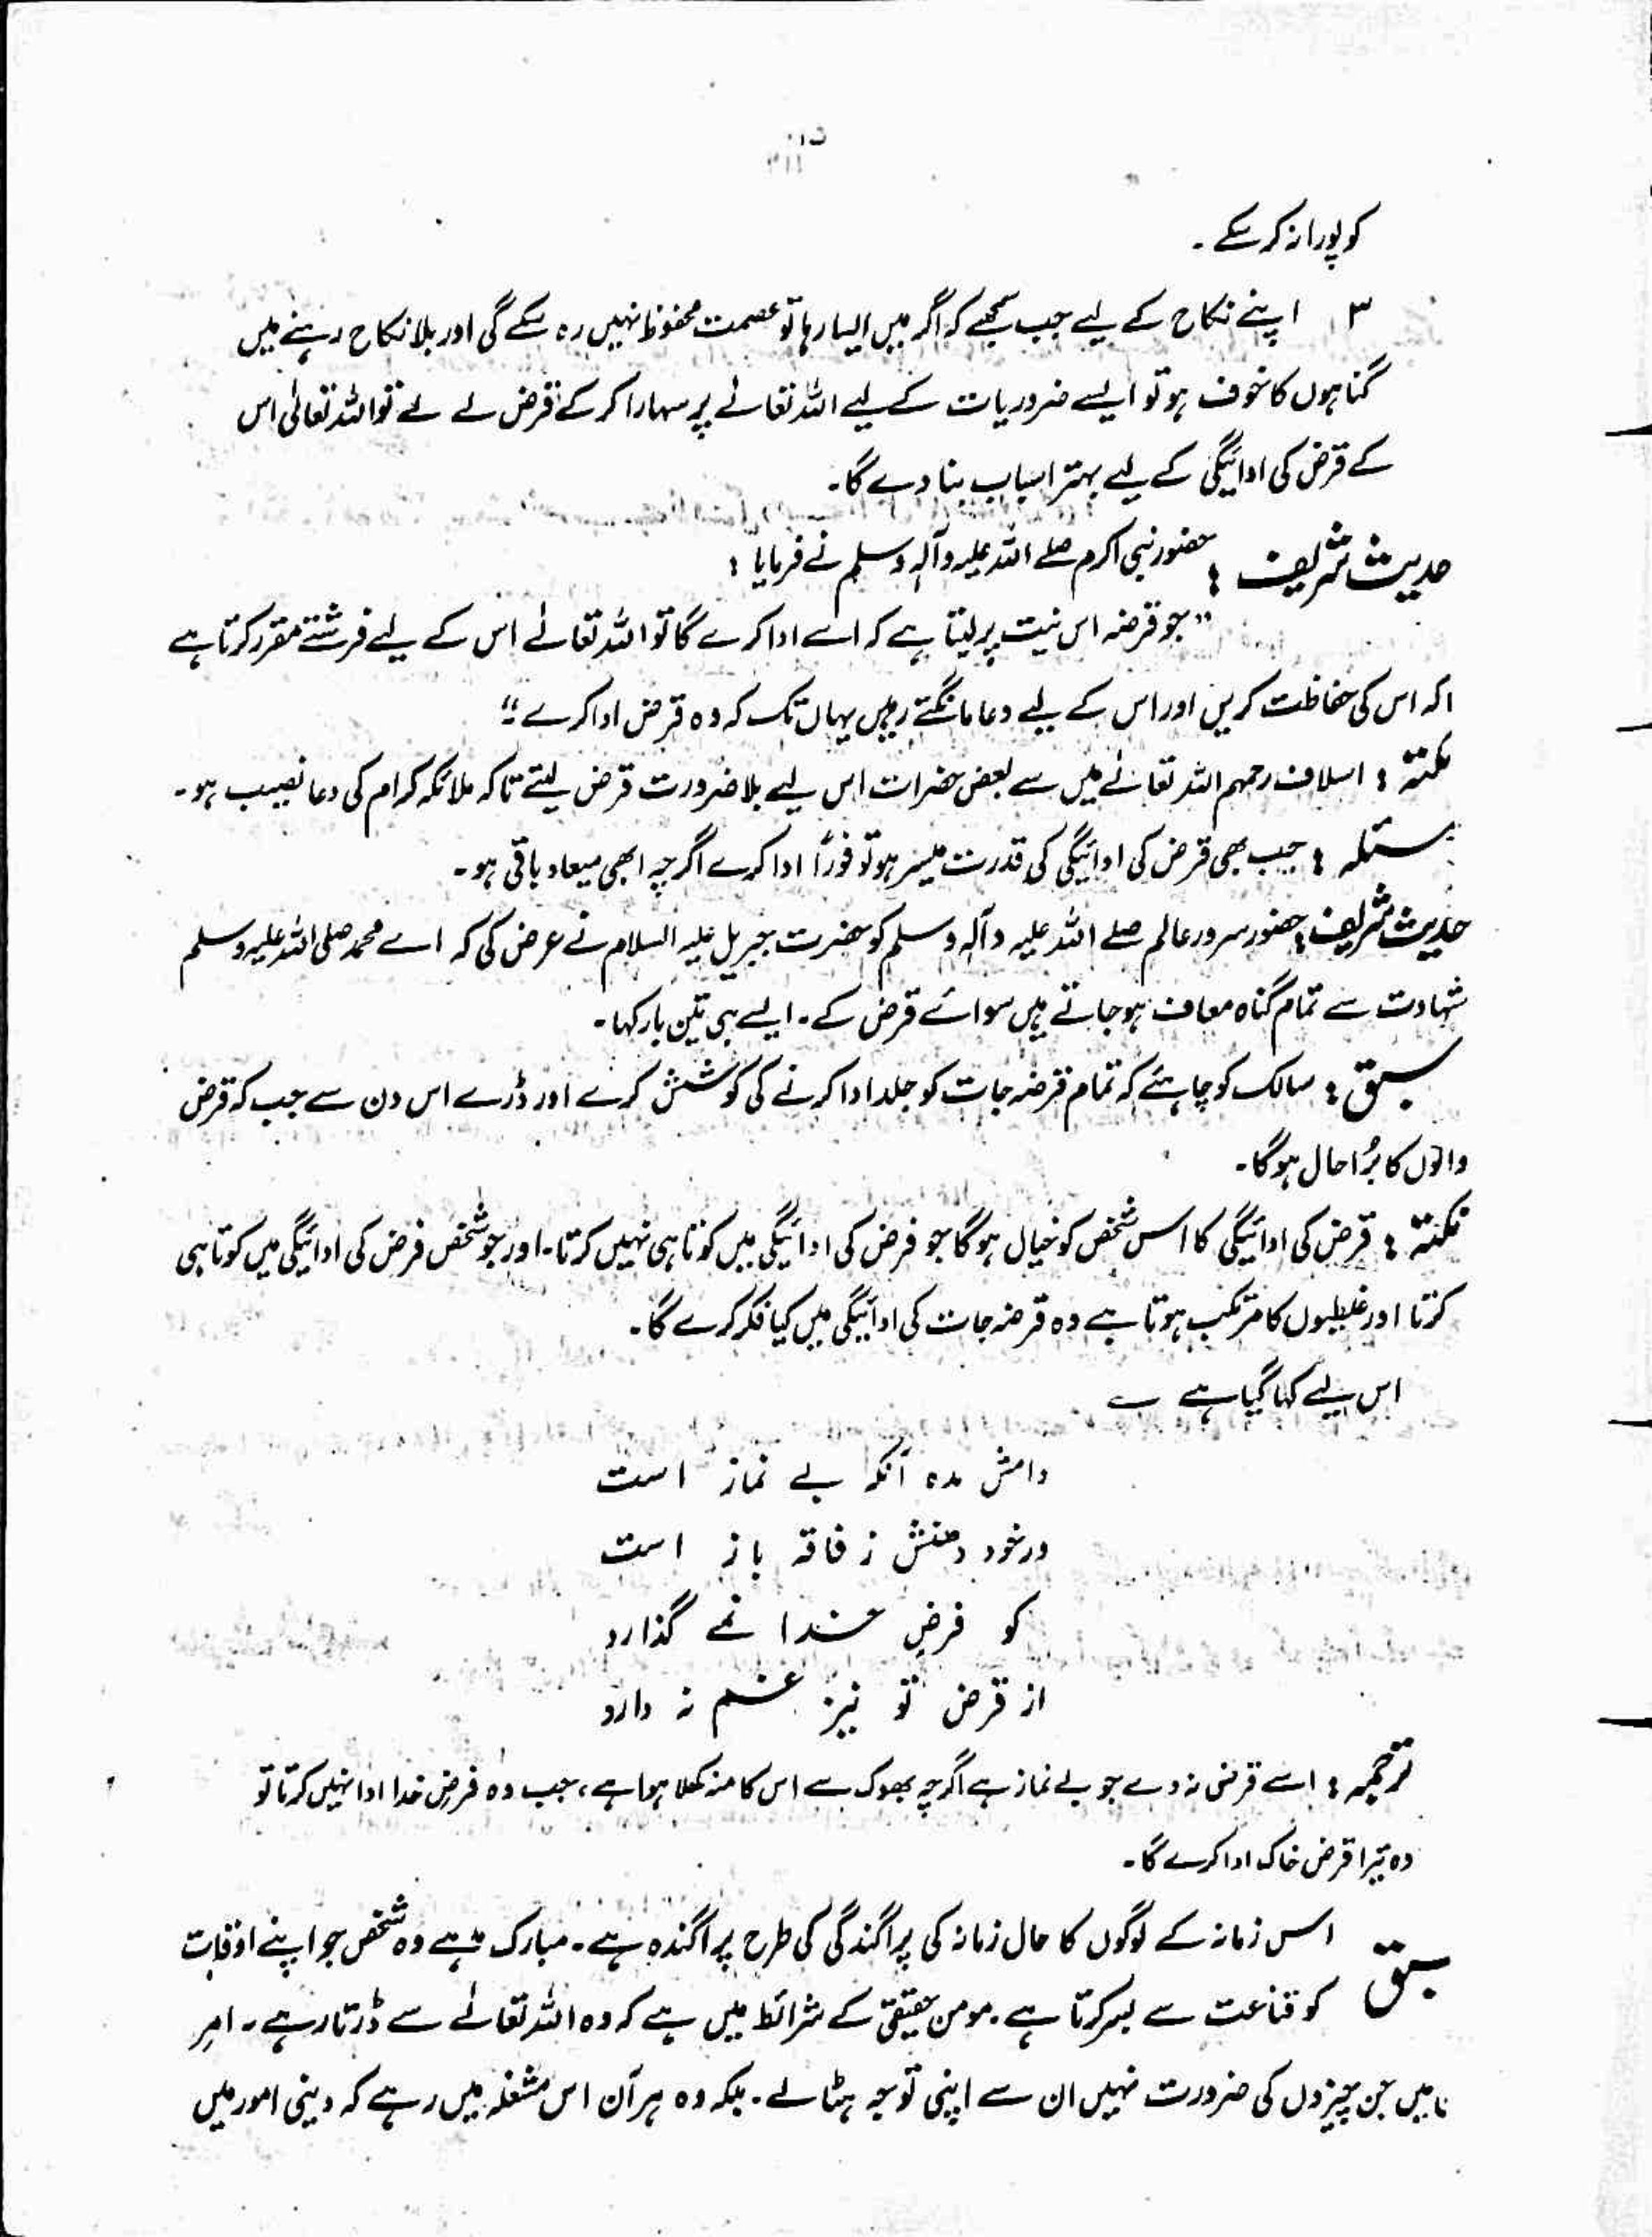 کو پورا نہ کر سکے ۔
۳ اپنے نکاح کے لیے جب سمجھے کہ اگر میں ایسا رہا تو عصمت محفوظ نہیں رہ سکے گی اور بلا نکاح رہنے میں
گناہوں کا خوف ہو تو ایسے ضروریات کے لیے اللہ تعالےٰ پر سہارا کر کے قرض لے لے تو اللہ تعالیٰ اس
کے قرض کی ادائیگی کے لیے بہتر اسباب بنا دے گا۔
حدیث شریف : حضور نبی اکرم صلے اللہ علیہ وآلہٖ وسلم نے فرمایا :
”جو قرضہ اس نیت پر لیتا ہے کہ اسے ادا کرے گا تو اللہ تعالےٰ اس کے لیے فرشتے مقرر کرتا ہے
اکہ اس کی حفاظت کریں اور اس کے لیے دعا مانگتے رہیں یہاں تک کہ وہ قرض ادا کرے“
نکتہ : اسلاف رحمہم اللہ تعالےٰ میں سے بعض حضرات اس لیے بلا ضرورت قرض لیتے تاکہ ملائکہ کرام کی دعا نصیب ہو۔
مسئلہ : جب بھی قرض کی ادائیگی کی قدرت میسر ہو تو فوراً ادا کرے اگرچہ ابھی میعاد باقی ہو۔
حدیث شریف : حضور سرور عالم صلے اللہ علیہ وآلہٖ وسلم کو حضرت جبریل علیہ السلام نے عرض کی کہ اے محمد صلی اللہ علیہ وسلم
شہادت سے تمام گناہ معاف ہو جاتے ہیں سوائے قرض کے۔ ایسے ہی تین بار کہا۔
سبق : سالک کو چاہئے کہ تمام قرضہ جات کو جلد ادا کرنے کی کوشش کرے اور ڈرے اس دن سے جب کہ قرض
والوں کا بُرا حال ہو گا۔
نکتہ : قرض کی ادائیگی کا اس شخص کو خیال ہو گا جو فرض کی ادائیگی میں کوتاہی نہیں کرتا۔ اور جو شخص فرض کی ادائیگی میں کوتاہی
کرتا اور غلطیوں کا مرتکب ہوتا ہے وہ قرضہ جات کی ادائیگی میں کیا فکر کرے گا۔
اس لیے کہا گیا ہے ؎
دامش مدہ آنکہ بے نماز است
ورخود دہنش ز فاقہ باز است
کو فرضِ خدا نمے گذارد
از قرض تو نیز غم نہ دارد
ترجمہ : اسے قرض نہ دے جو بے نماز ہے اگرچہ بھوک سے اس کا منہ کھلا ہوا ہے، جب وہ فرضِ خدا ادا نہیں کرتا تو
وہ تیرا قرض خاک ادا کرے گا۔
سبق اس زمانہ کے لوگوں کا حال زمانہ کی پراگندگی کی طرح پراگندہ ہے۔ مبارک ہے وہ شخص جو اپنے اوقات
کو قناعت سے بسر کرتا ہے۔ مومن حقیقی کے شرائط میں ہے کہ وہ اللہ تعالےٰ سے ڈرتا رہے۔ امر
نا میں جن چیزوں کی ضرورت نہیں ان سے اپنی توجہ ہٹالے۔ بلکہ وہ ہر آن اس مشغلہ میں رہے کہ دینی امور میں